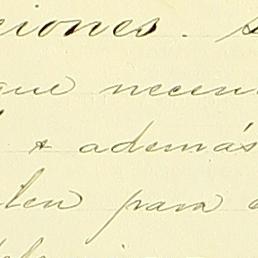 ciones.
que necen
& además
len para